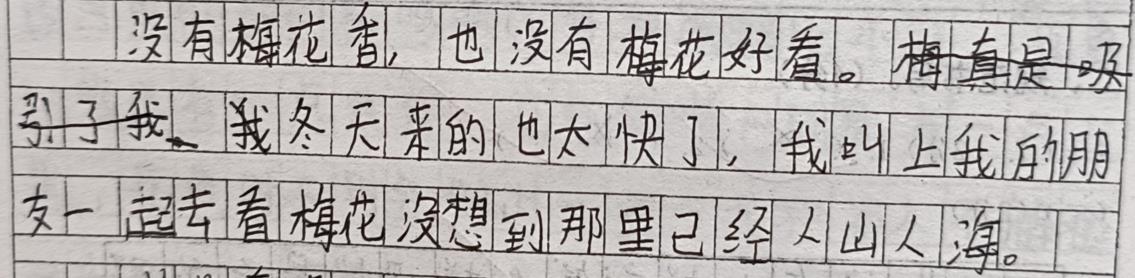 没有梅花香，也没有梅花好看。梅真是吸
引了我。我冬天来的也太快了，我叫上我的朋
友一起去看梅花没想到那里已经人山人海。